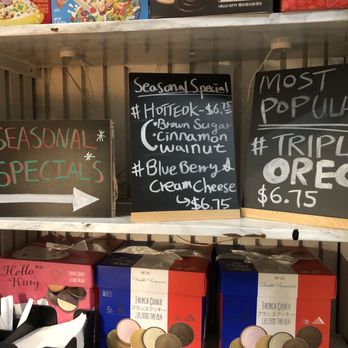 HELLO KITTY
SEASONAL*
SPECIALS
Seasonal Special
#HOTTEOK-$6.75
Brown Sugar
Cinnamon
Walnut
#Blue Berry &
Cream Cheese
$6.75
MOST
POPULA
# TRIPL
OREO
$6.75
Hello
Kitty
FRENCH COOKIE
フランスクッキー
FRENCH COOKIE
フランスクッキー